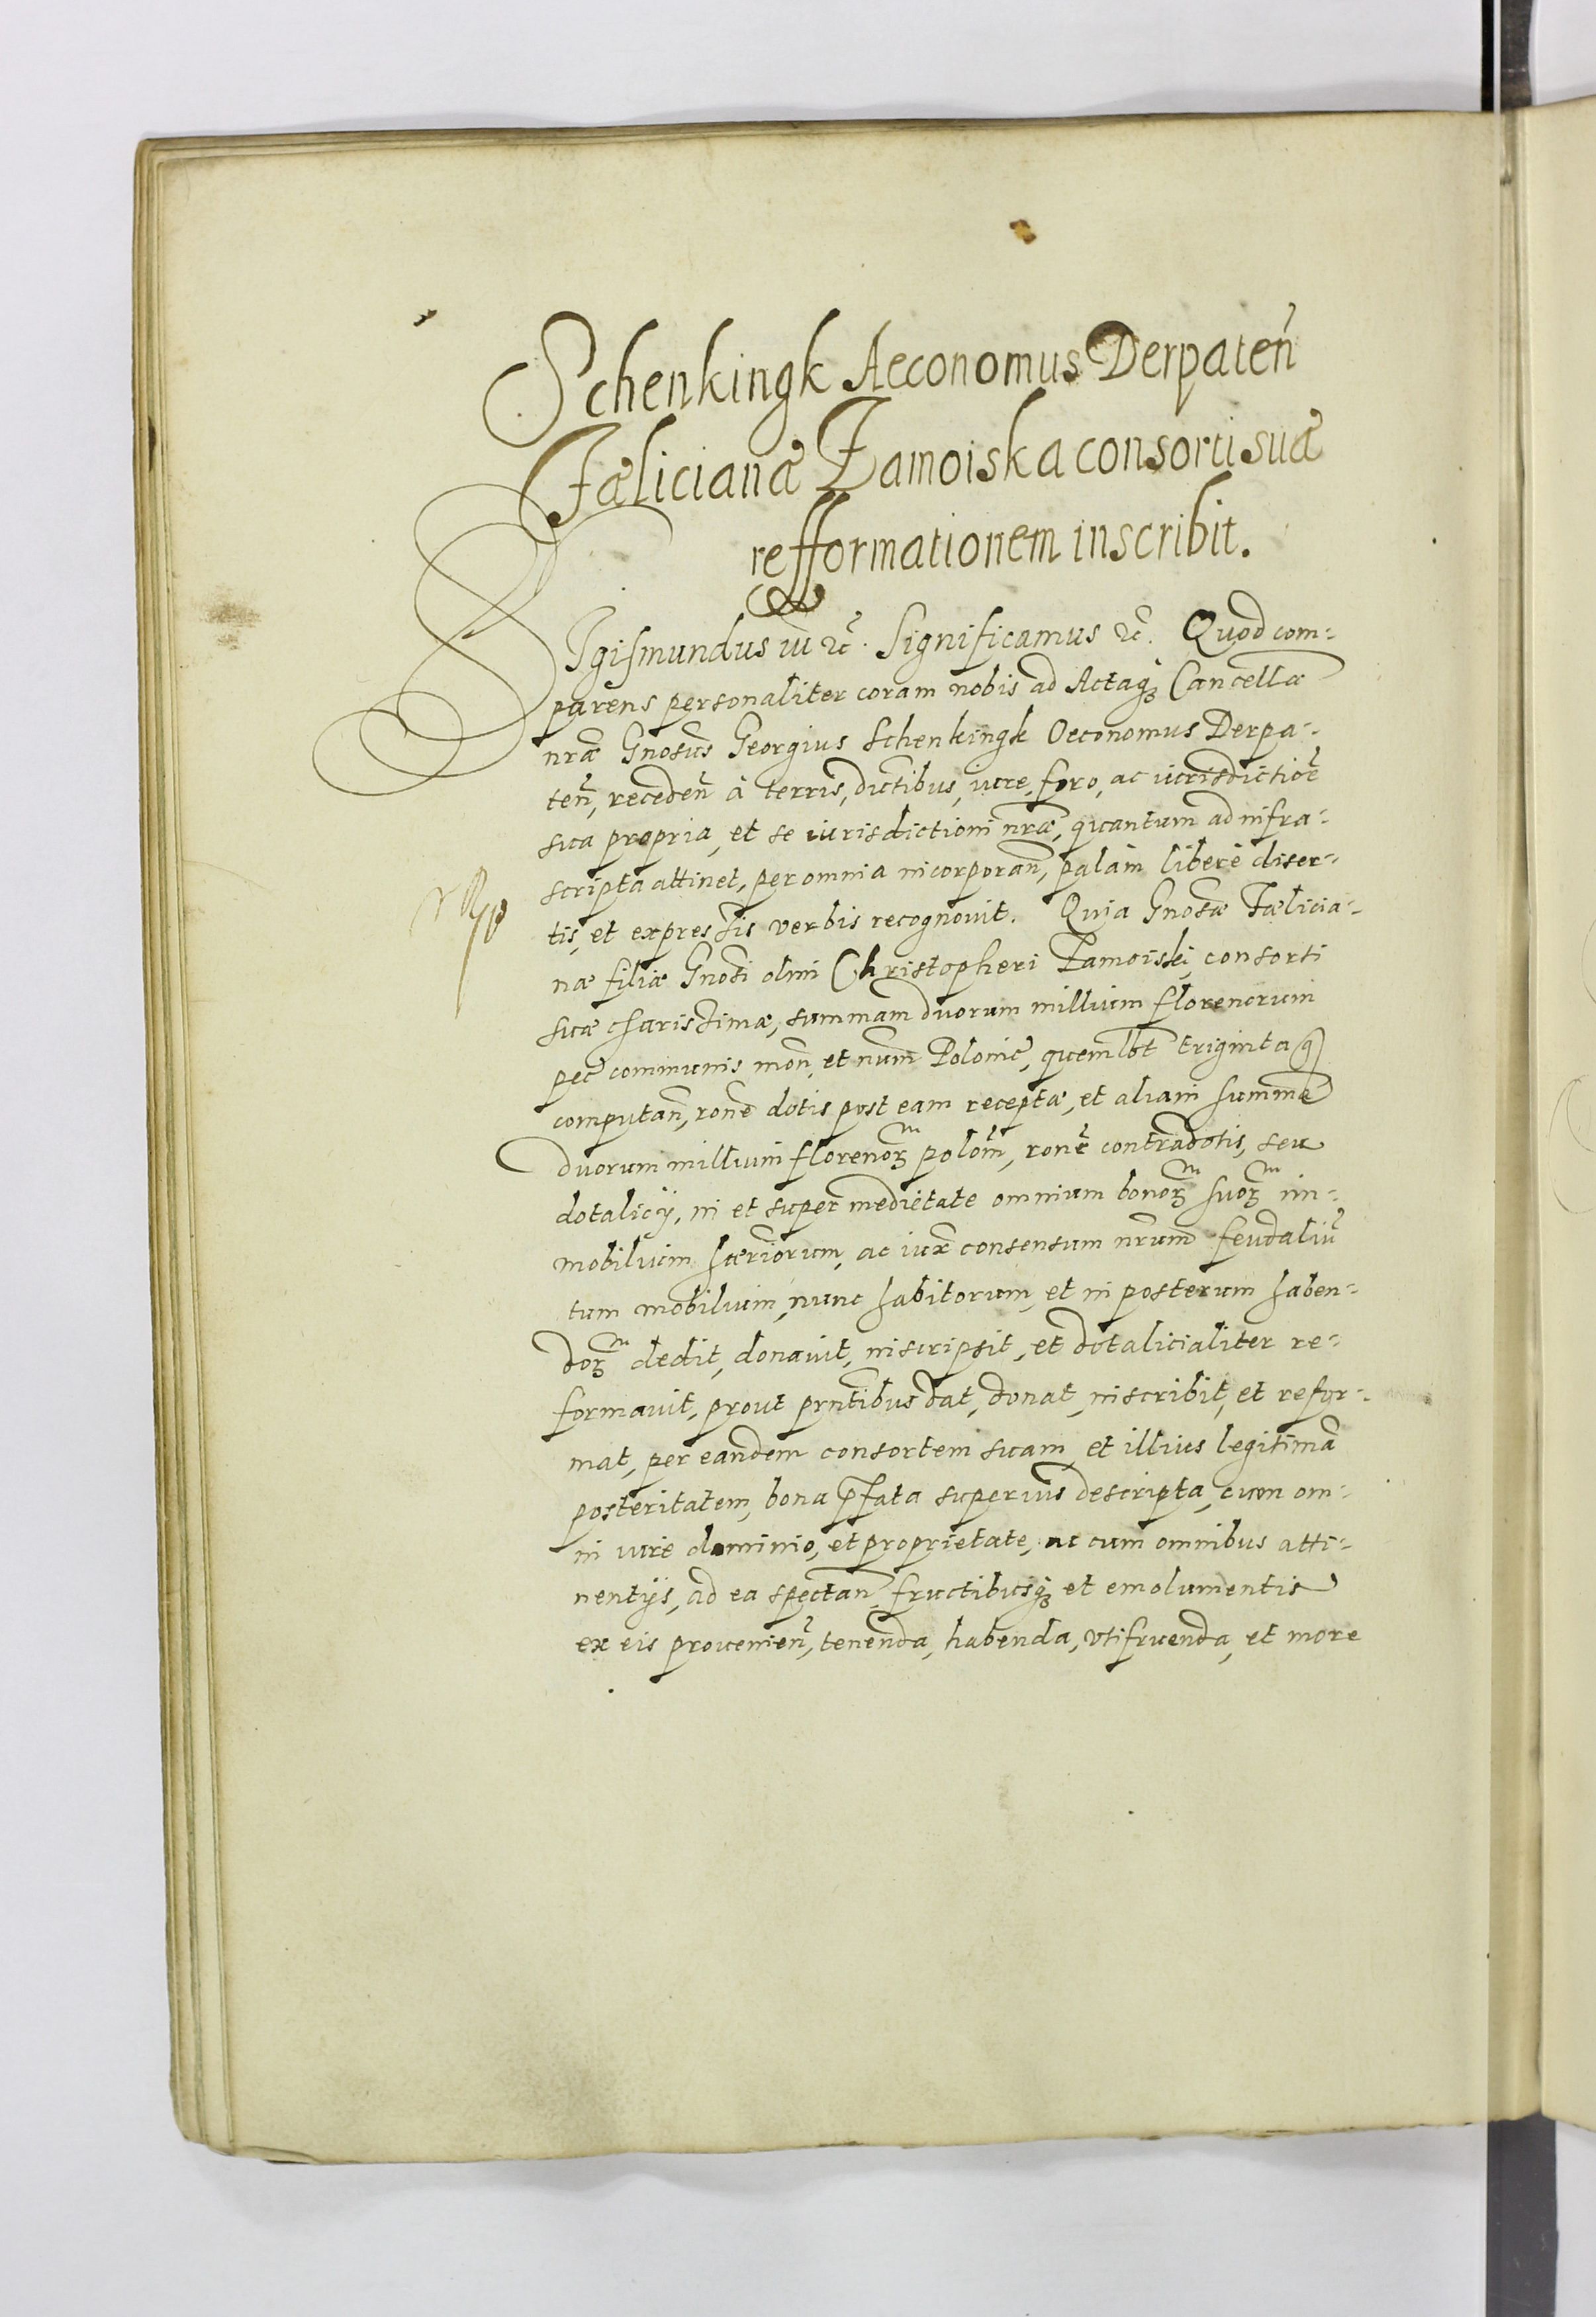 Schenkingk Aeconomus Derpateñ
Fæliciannæ Zamoiska consorti suæ
refformationem inscribit.
SIgismundus iii etc̃. Significamus etc̃. Quod com-
parens personaliter coram nobis ad Actaq́ȝ Cancellæ
nr̃æ Gnosus Georgius Schenkingk Oeconomus Derpa-
teñ, recedeñ à terris, dictibus, iure, foro, ac iurisdictiõe
sua propria, et se iurisdictioni nr̃æ, quantum ad infra-
scripta attinet, per omnia incorporañ, palam libere diser-
tis, et expressis verbis recognovit. Quia Gnosæ Fælicia-
næ filiæ Gnosi olim Christopheri Zamoiski, consorti
suæ charissimæ, summam duorum millium florenorum
pec̃ communis moñ, et num̃ Poloniæ, quemlbt triginta
computañ, rone dotis post eam receptæ, et aliam summã
duorum millium florenorȝ poloñ, rone contradotis, seu
dotalicy, in et super medietate omnium bonorȝ suorȝ im-
mobilium hæriorum, ac iux consensum nr̃um feudaliũ
tum mobilium, nunc habitorum, et in posterum haben-
dorȝ dedit, donavit, inscripsit, et dotalicialiter re-
formavit, prout pñtibus dat, donat, inscribit, et refor-
mat, per eandem consortem suam, et illius legitimã
posteritatem, bona pfata superius descripta, cum om-
ni iure dominio, et proprietate, ac cum omnibus atti-
nentijs, ad ea spectañ fructibusq́ȝ et emolumentis
ex eis provenieñ, tenenda, habenda, vtifruenda, et more